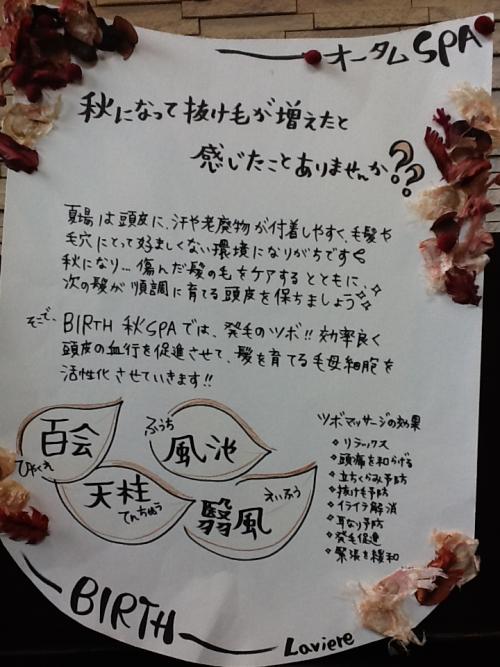 オータムSPA
秋になって抜け毛が増えたと
感じたことありませんか??
夏場は頭皮に、汗や老廃物が付着しやすく、毛髪や
毛穴にとって好ましくない環境になりがちです
秋になり…傷んだ髪の毛をケアするとともに、
次の髪が順調に育てる頭皮を保ちましょう
そこで、BIRTH 秋SPAでは、発毛のツボ!!効率良く
頭皮の血行を促進させて、髪を育てる毛母細胞を
活性化させていきます!!
百会
ひゃくえ
ふうち
風池
天柱
てんちゅう
えいふう
翳風
ツボマッサージの効果
リラックス
頭痛を和らげる
立ちくらみ予防
抜け毛予防
イライラ解消
耳なり予防
発毛促進
緊張を緩和
BIRTH
Laviere